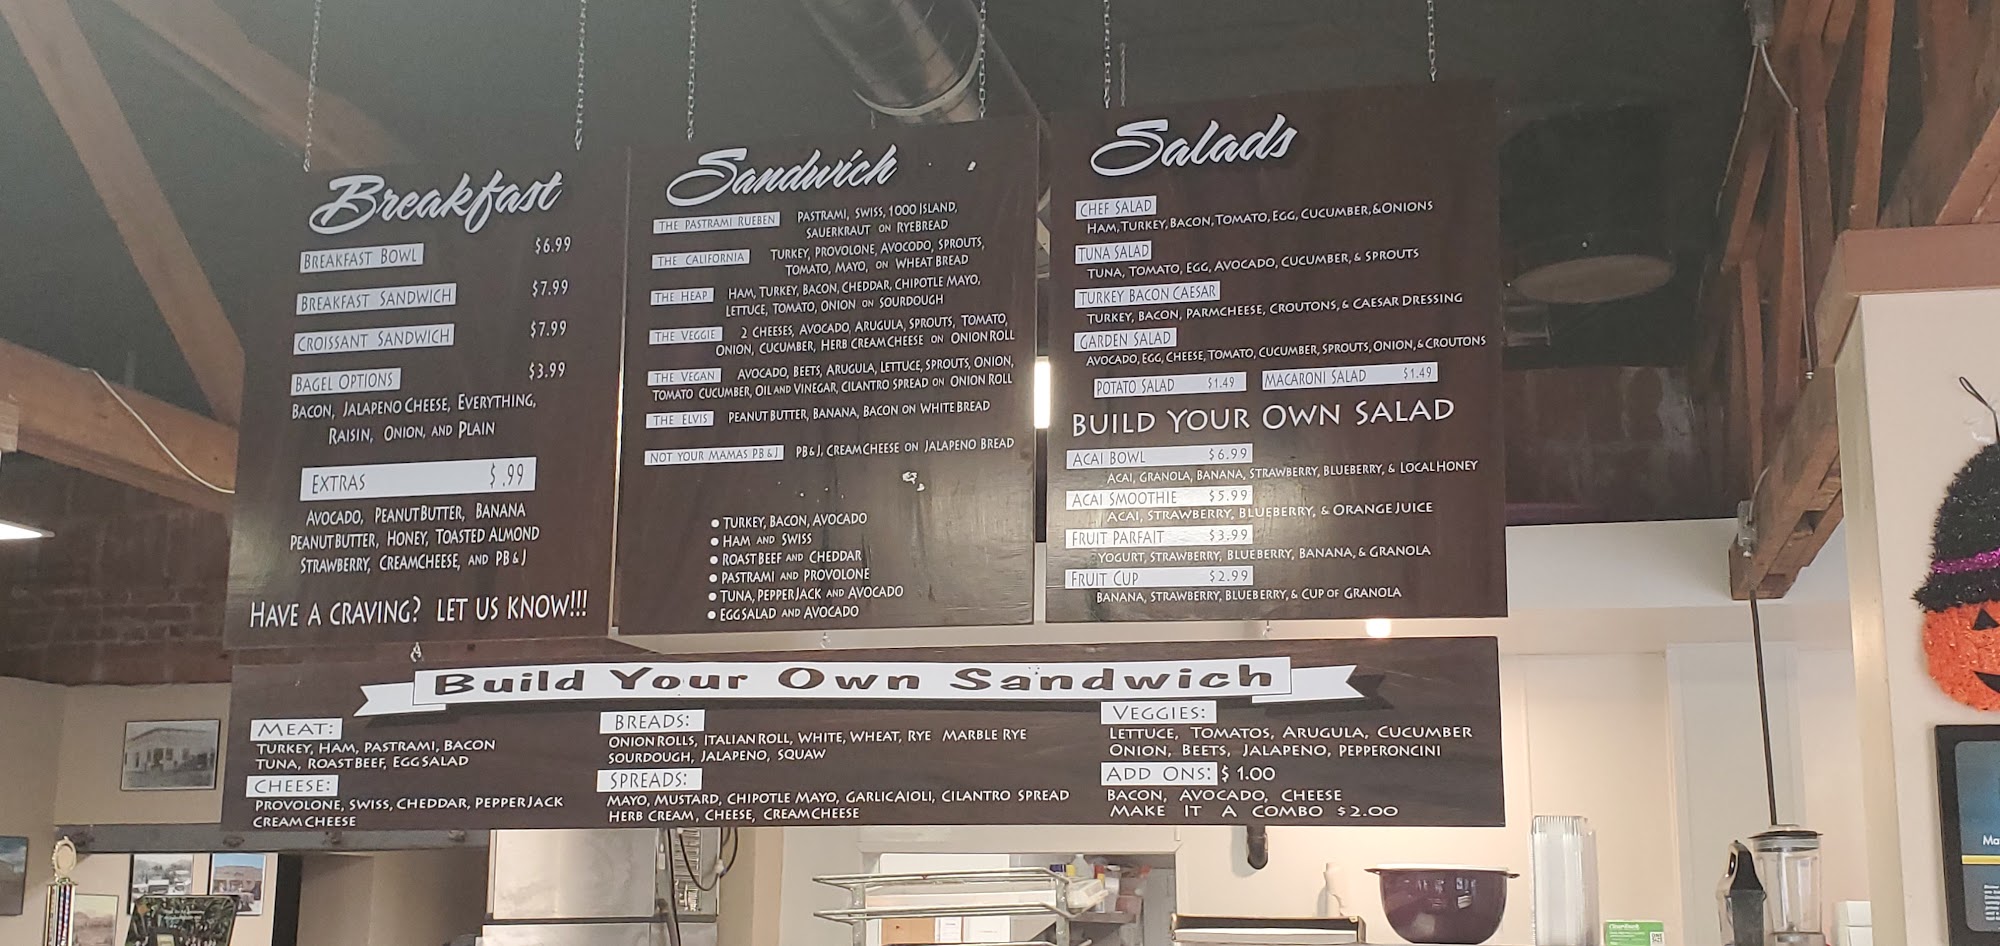 Breakfast
BREAKFAST BOWL $6.99
BREAKFAST SANDWICH $7.99
CROISSANT SANDWICH $7.99
BAGEL OPTIONS $3.99
BACON, JALAPENO CHEESE, EVERYTHING,
RAISIN, ONION, AND PLAIN
EXTRAS $.99
AVOCADO, PEANUT BUTTER, BANANA
PEANUT BUTTER, HONEY, TOASTED ALMOND
STRAWBERRY, CREAMCHEESE, AND PB & J
HAVE A CRAVING? LET US KNOW!!!
Sandwich
THE PASTRAMI RUEBEN PASTRAMI, SWISS, 1000 ISLAND,
SAUERKRAUT ON RYEBREAD
THE CALIFORNIA TURKEY, PROVOLONE, AVOCODO, SPROUTS,
TOMATO, MAYO, ON WHEAT BREAD
THE HEAP HAM, TURKEY, BACON, CHEDDAR, CHIPOTLE MAYO,
LETTUCE, TOMATO, ONION ON SOURDOUGH
THE VEGGIE 2 CHEESES, AVOCADO, ARUGULA, SPROUTS, TOMATO,
ONION, CUCUMBER, HERB CREAMCHEESE ON ONION ROLL
THE VEGAN AVOCADO, BEETS, ARUGULA, LETTUCE, SPROUTS, ONION,
TOMATO CUCUMBER, OIL AND VINEGAR, CILANTRO SPREAD ON ONION ROLL
THE ELVIS PEANUT BUTTER, BANANA, BACON ON WHITE BREAD
NOT YOUR MAMAS PB & J PB & J, CREAMCHEESE ON JALAPENO BREAD
• TURKEY, BACON, AVOCADO
• HAM AND SWISS
• ROAST BEEF AND CHEDDAR
• PASTRAMI AND PROVOLONE
• TUNA, PEPPER JACK AND AVOCADO
• EGG SALAD AND AVOCADO
Salads
CHEF SALAD
HAM, TURKEY, BACON, TOMATO, EGG, CUCUMBER, & ONIONS
TUNA SALAD
TUNA, TOMATO, EGG, AVOCADO, CUCUMBER, & SPROUTS
TURKEY BACON CAESAR
TURKEY, BACON, PARMCHEESE, CROUTONS, & CAESAR DRESSING
GARDEN SALAD
AVOCADO, EGG, CHEESE, TOMATO, CUCUMBER, SPROUTS, ONION, & CROUTONS
POTATO SALAD $1.49 MACARONI SALAD $1.49
BUILD YOUR OWN SALAD
ACAI BOWL $6.99
ACAI, GRANOLA, BANANA, STRAWBERRY, BLUEBERRY, & LOCAL HONEY
ACAI SMOOTHIE $5.99
ACAI, STRAWBERRY, BLUEBERRY, & ORANGE JUICE
FRUIT PARFAIT $3.99
YOGURT, STRAWBERRY, BLUEBERRY, BANANA, & GRANOLA
FRUIT CUP $2.99
BANANA, STRAWBERRY, BLUEBERRY, & CUP OF GRANOLA
Build Your Own Sandwich
MEAT:
TURKEY, HAM, PASTRAMI, BACON
TUNA, ROAST BEEF, EGG SALAD
CHEESE:
PROVOLONE, SWISS, CHEDDAR, PEPPER JACK
CREAM CHEESE
BREADS:
ONION ROLLS, ITALIAN ROLL, WHITE, WHEAT, RYE MARBLE RYE
SOURDOUGH, JALAPENO, SQUAW
SPREADS:
MAYO, MUSTARD, CHIPOTLE MAYO, GARLIC AIOLI, CILANTRO SPREAD
HERB CREAM, CHEESE, CREAM CHEESE
VEGGIES:
LETTUCE, TOMATOS, ARUGULA, CUCUMBER
ONION, BEETS, JALAPENO, PEPPERONCINI
ADD ONS: $1.00
BACON, AVOCADO, CHEESE
MAKE IT A COMBO $2.00
Ma